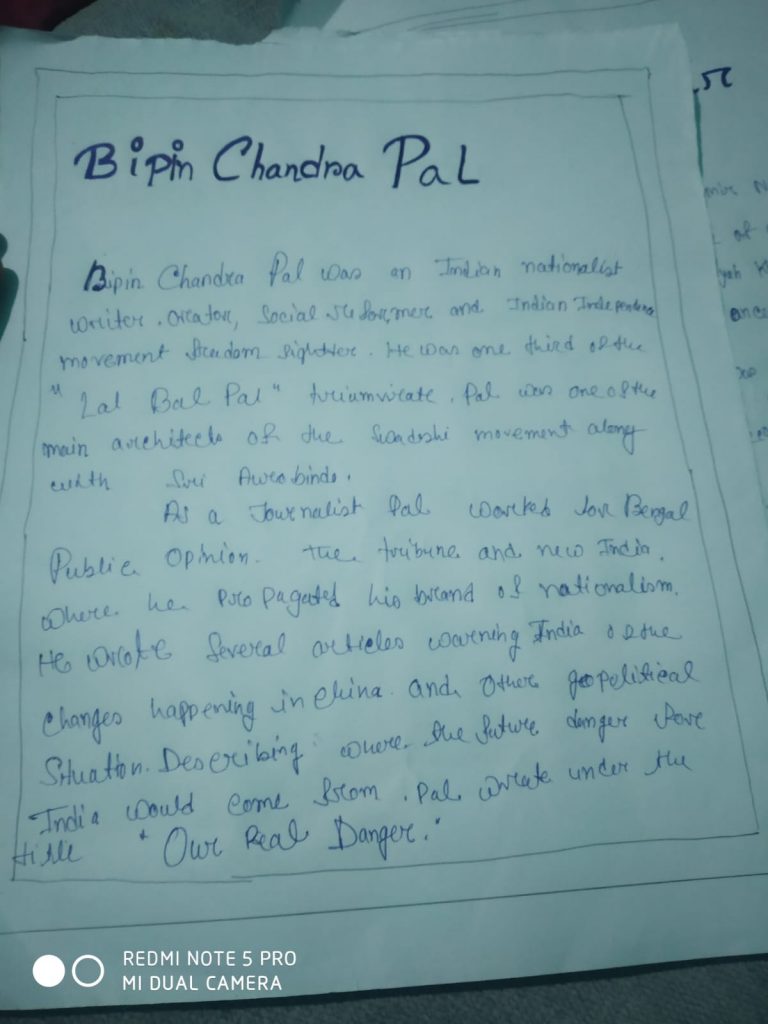 Bipin Chandra Pal
Bipin Chandra Pal was an Indian nationalist
writer, orator, social reformer and Indian Independence
movement freedom fighter. He was one third of the
"Lal Bal Pal" triumvirate. Pal was one of the
main architects of the Swadeshi movement along
with Sri Aurobindo.
As a Journalist Pal worked for Bengal
Public Opinion. The tribune and new India,
where he propagated his brand of nationalism.
He wrote several articles warning India of the
changes happening in china and other geopolitical
Situation. Describing where the future danger fore
India would come from, Pal wrote under the
title "Our Real Danger."
REDMI NOTE 5 PRO
MI DUAL CAMERA